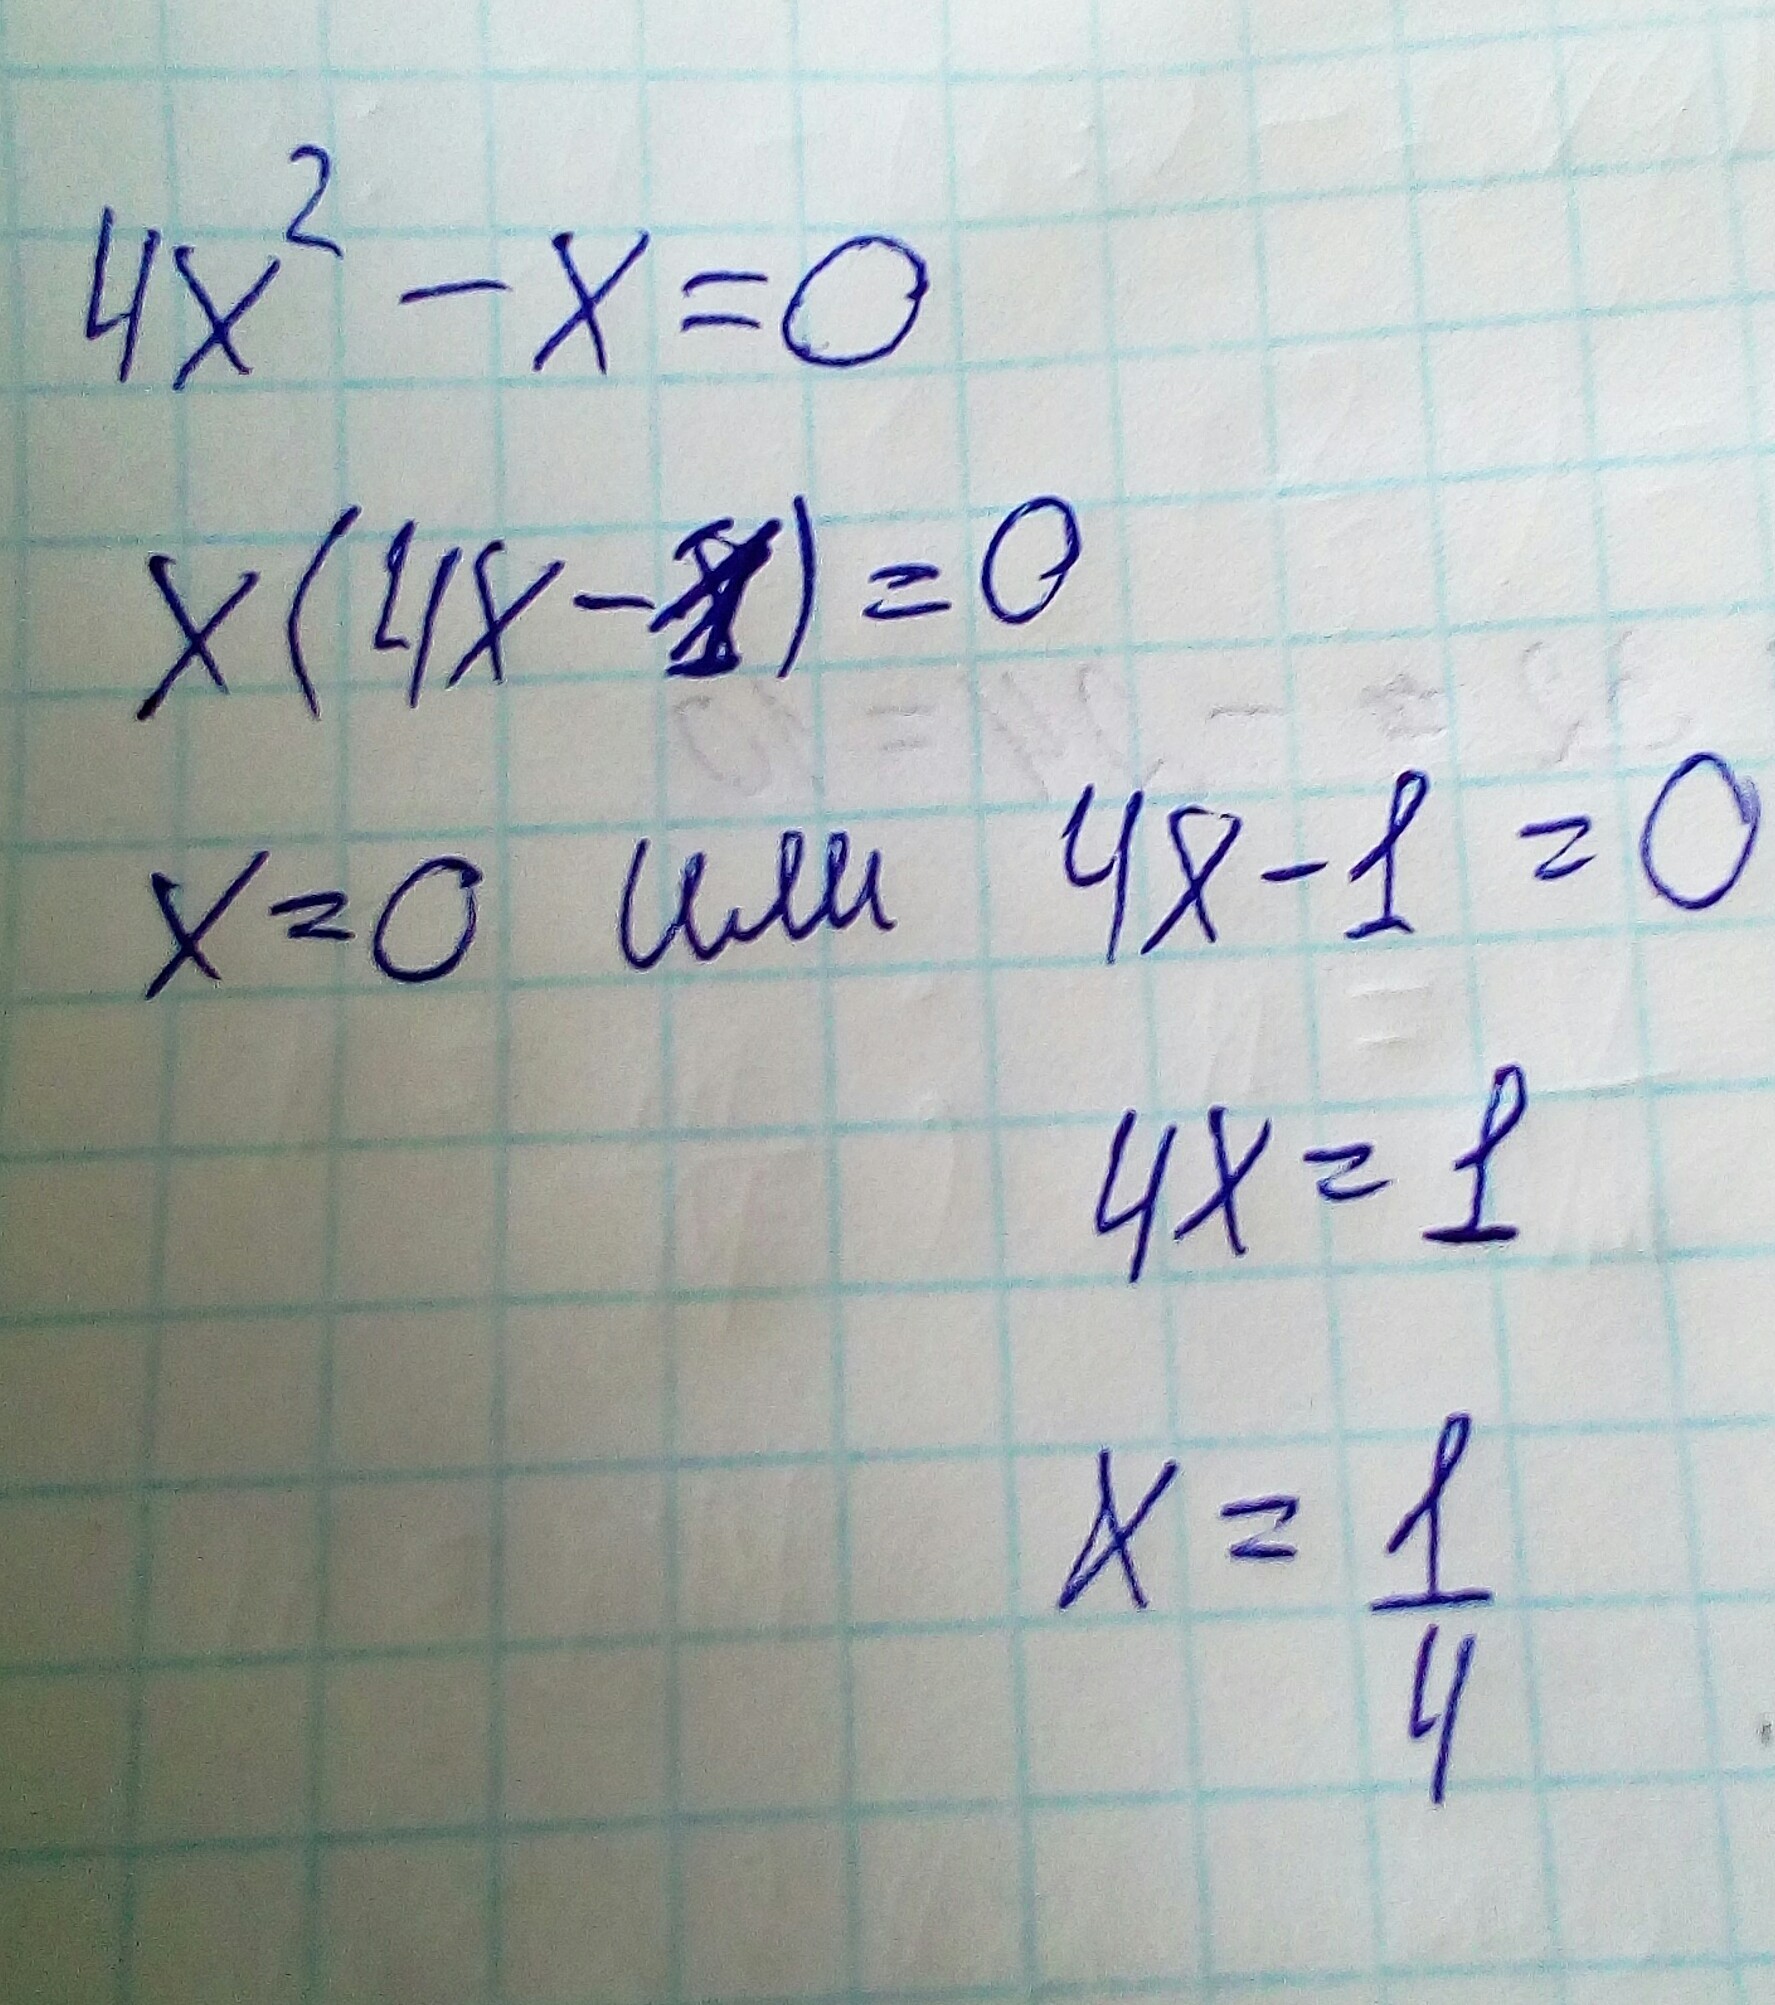 4x² - x = 0
x(4x - 1) = 0
x = 0 или 4x - 1 = 0
4x = 1
x = 1/4